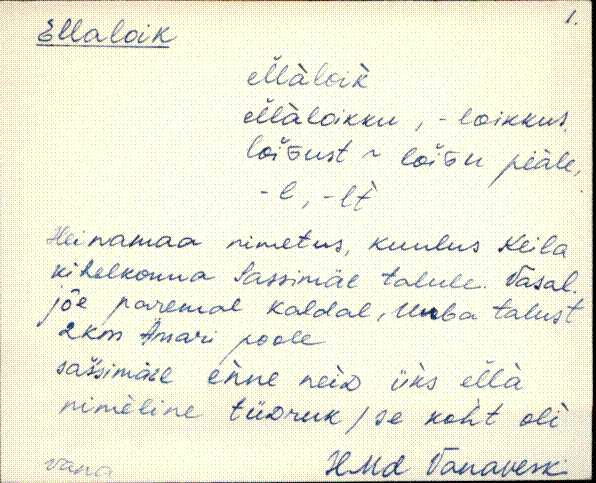 1.
Ellaloik
èl̆làloìk
èl̆làloikku, -loikkus,
loìGust ~ loìGu peàle,
-l, -lt
Heinamaa nimetus, kuulus Keila
kihelkonna Sassimäe talule. Vasal.
jõe paremal kaldal, Umba talust
2km Ämari poole
sas̆simäèl ènne neiD üks el̆là
nimèline tüDruk / se koht oli
vana HMd Vanaveski